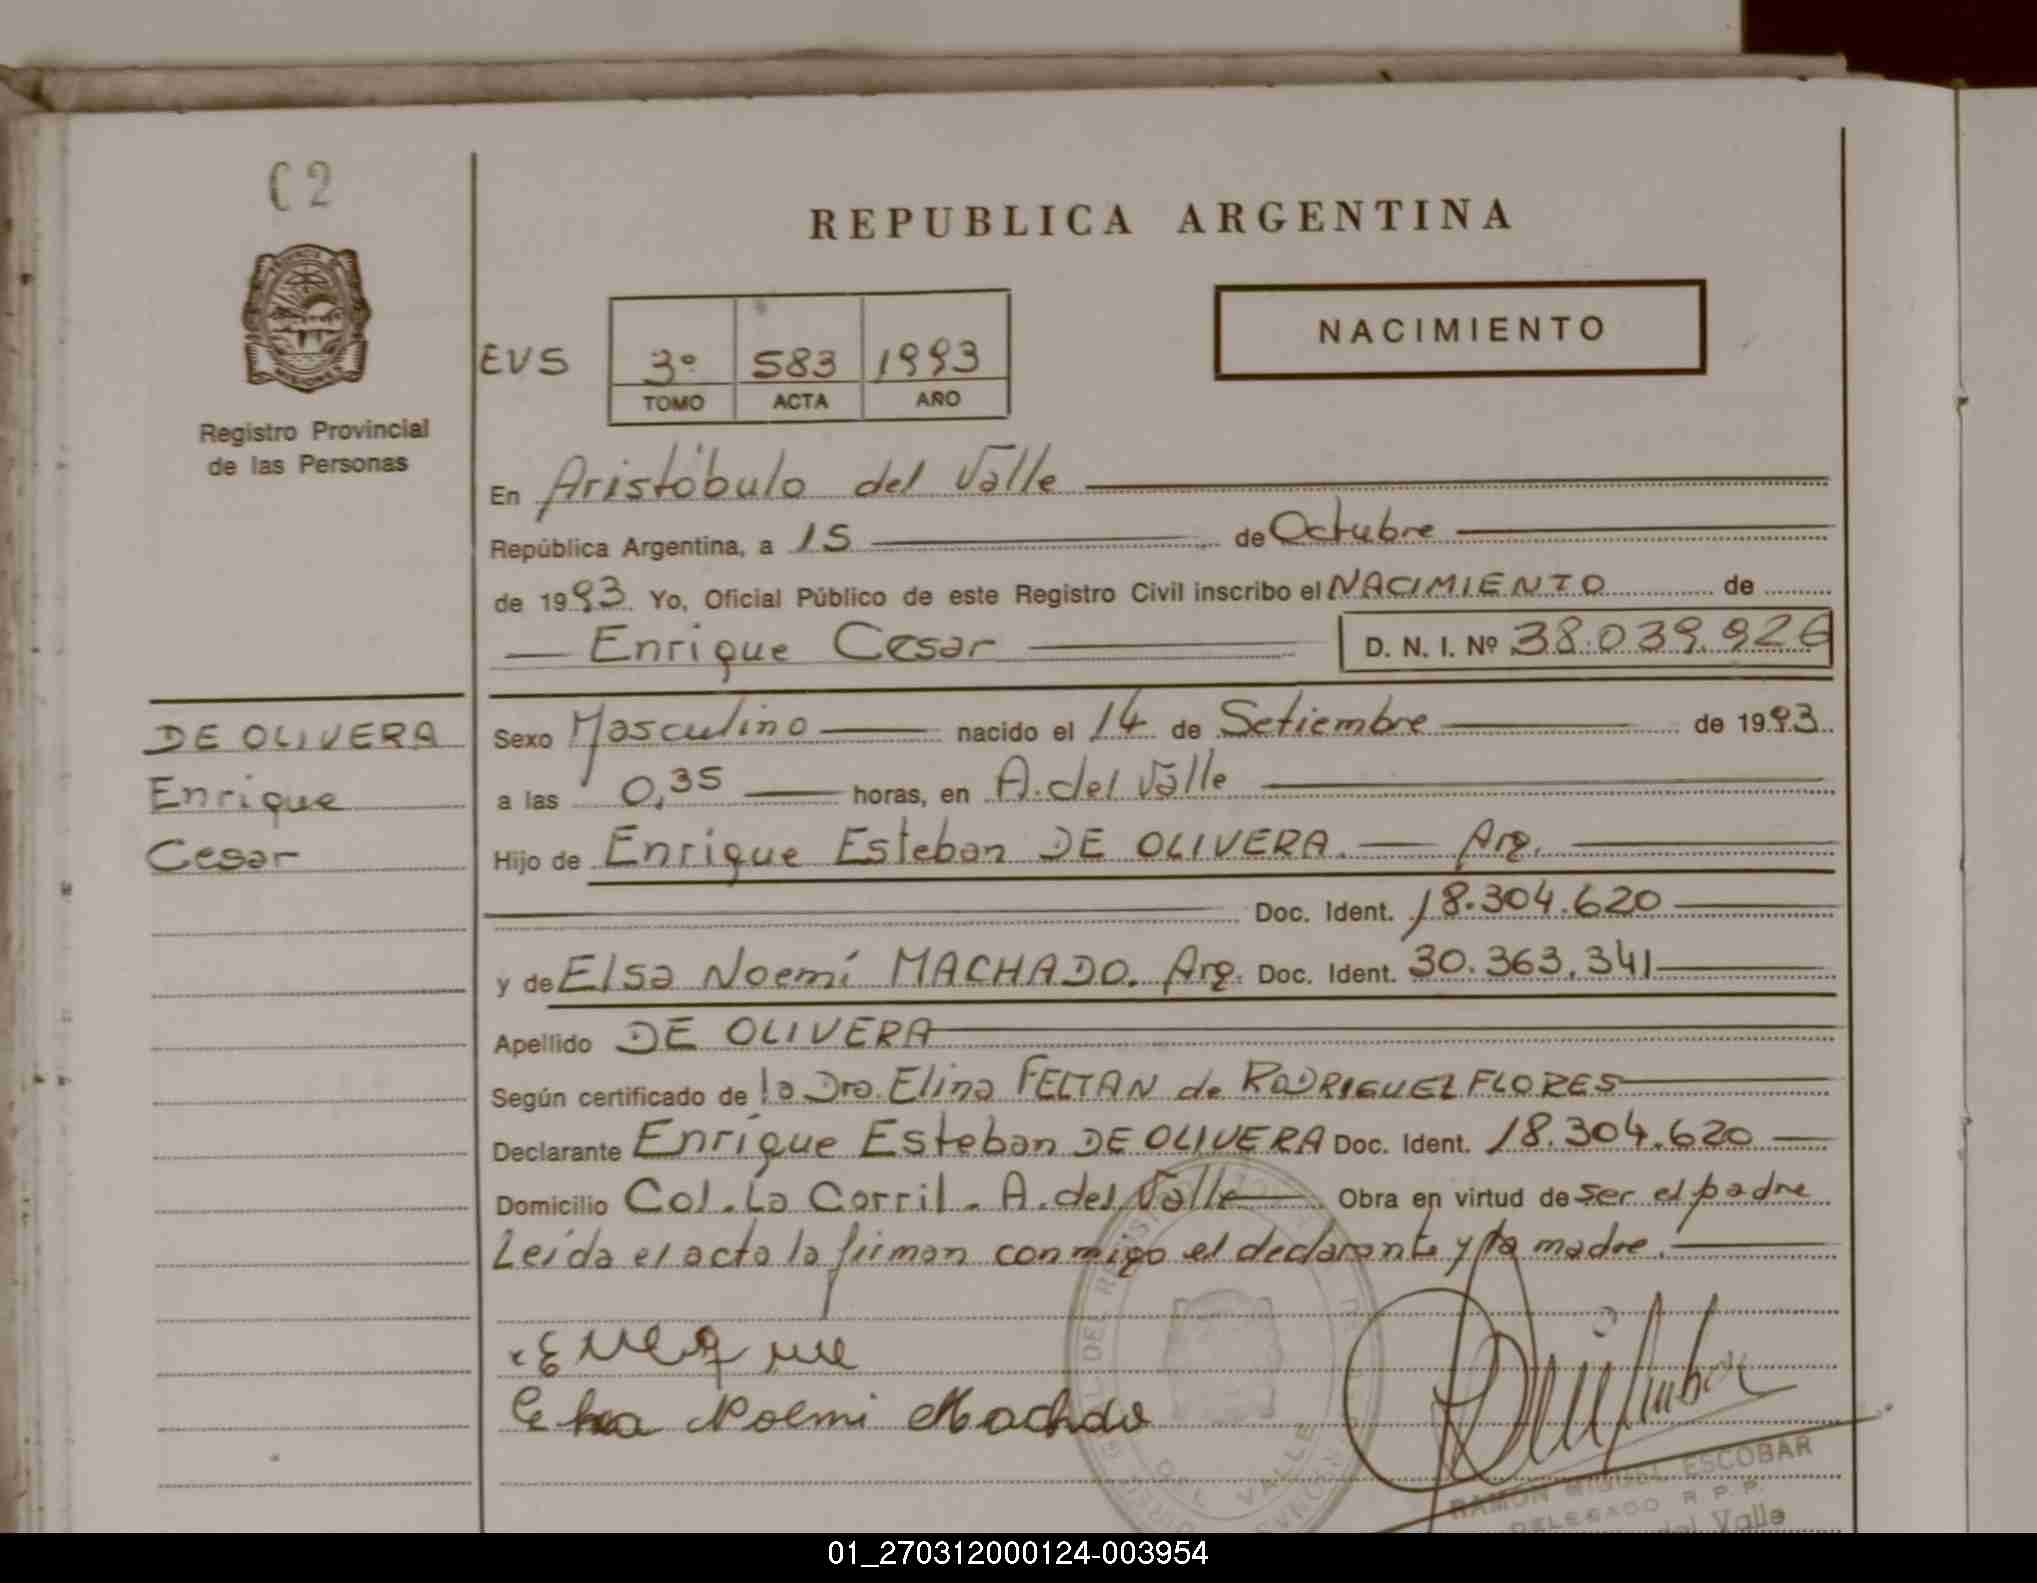 C 2
REPUBLICA ARGENTINA
NACIMIENTO
EVS 3º 583 1993
TOMO ACTA AÑO
Registro Provincial
de las Personas
En Aristóbulo del Valle
República Argentina, a 15 de Octubre
de 1993. Yo, Oficial Público de este Registro Civil inscribo el NACIMIENTO de
Enrique Cesar D. N. I. Nº 38.039.926
DE OLIVERA
Enrique
Cesar
Sexo Masculino nacido el 14 de Setiembre de 1993.
a las 0,35 horas, en A. del Valle
Hijo de Enrique Esteban DE OLIVERA. Arg.
Doc. Ident. 18.304.620
y de Elsa Noemí MACHADO. Arg. Doc. Ident. 30.363.341
Apellido DE OLIVERA
Según certificado de la Dra. Elina FELTAN de RODRIGUEZ FLORES
Declarante Enrique Esteban DE OLIVERA Doc. Ident. 18.304.620
Domicilio Col. La Corril. A. del Valle Obra en virtud de ser el padre
Leída el acta la firman conmigo el declarante y la madre.
Noemi Machado
RAMON MIGUEL ESCOBAR
DELEGADO R. P. P.
del Valle
01_270312000124-003954